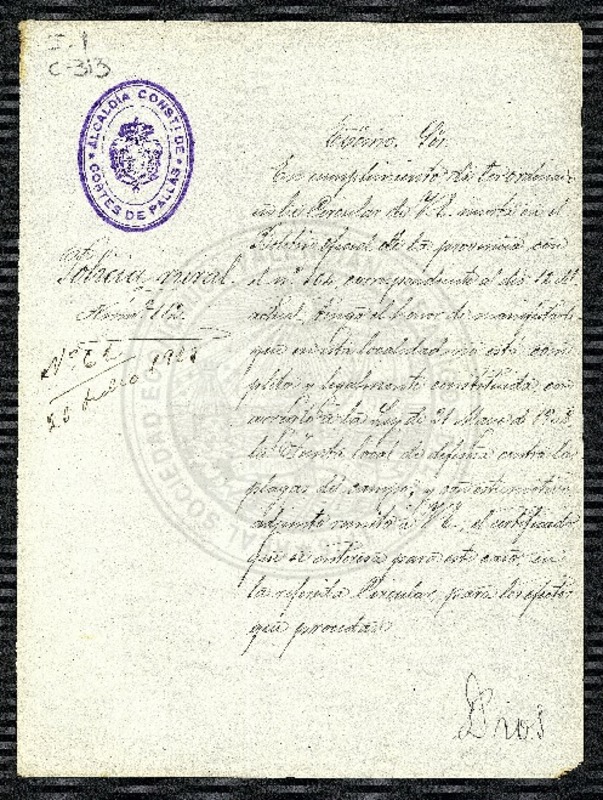 I.1
C-313
ALCALDÍA CONSTL DE
CORTES DE PALLÁS
Policia rural.
Núm.º 112.
Nº 62
23 Julio 1911
Excmo. Sor.
En cumplimiento de lo ordena-
Circular de V.E. inserta en el
Boletin oficial de la provincia con
el nº 164, correspondiente al dia 12 del
actual, tengo el honor de manifestarle
que en esta localidad no está com-
pleta y legalmente constituida con
arreglo a la Ley de 21 Mayo de 1908
la Junta local de defensa contra las
plagas del campo, y con este motivo
adjunto remito á V.E. el certificado
que se interesa para este caso, en
la referida Circular, para los efectos
que procedan.
Dios
SOCIEDAD